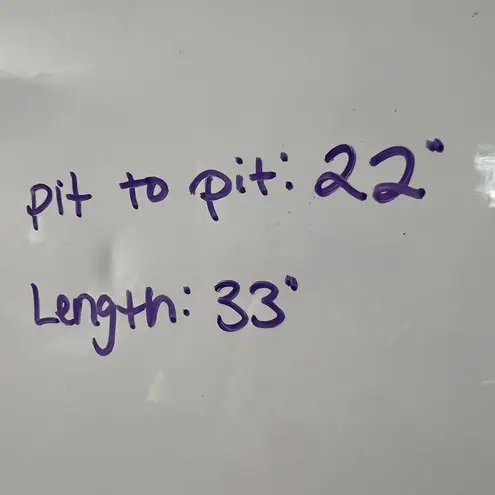 pit to pit: 22"
Length: 33"